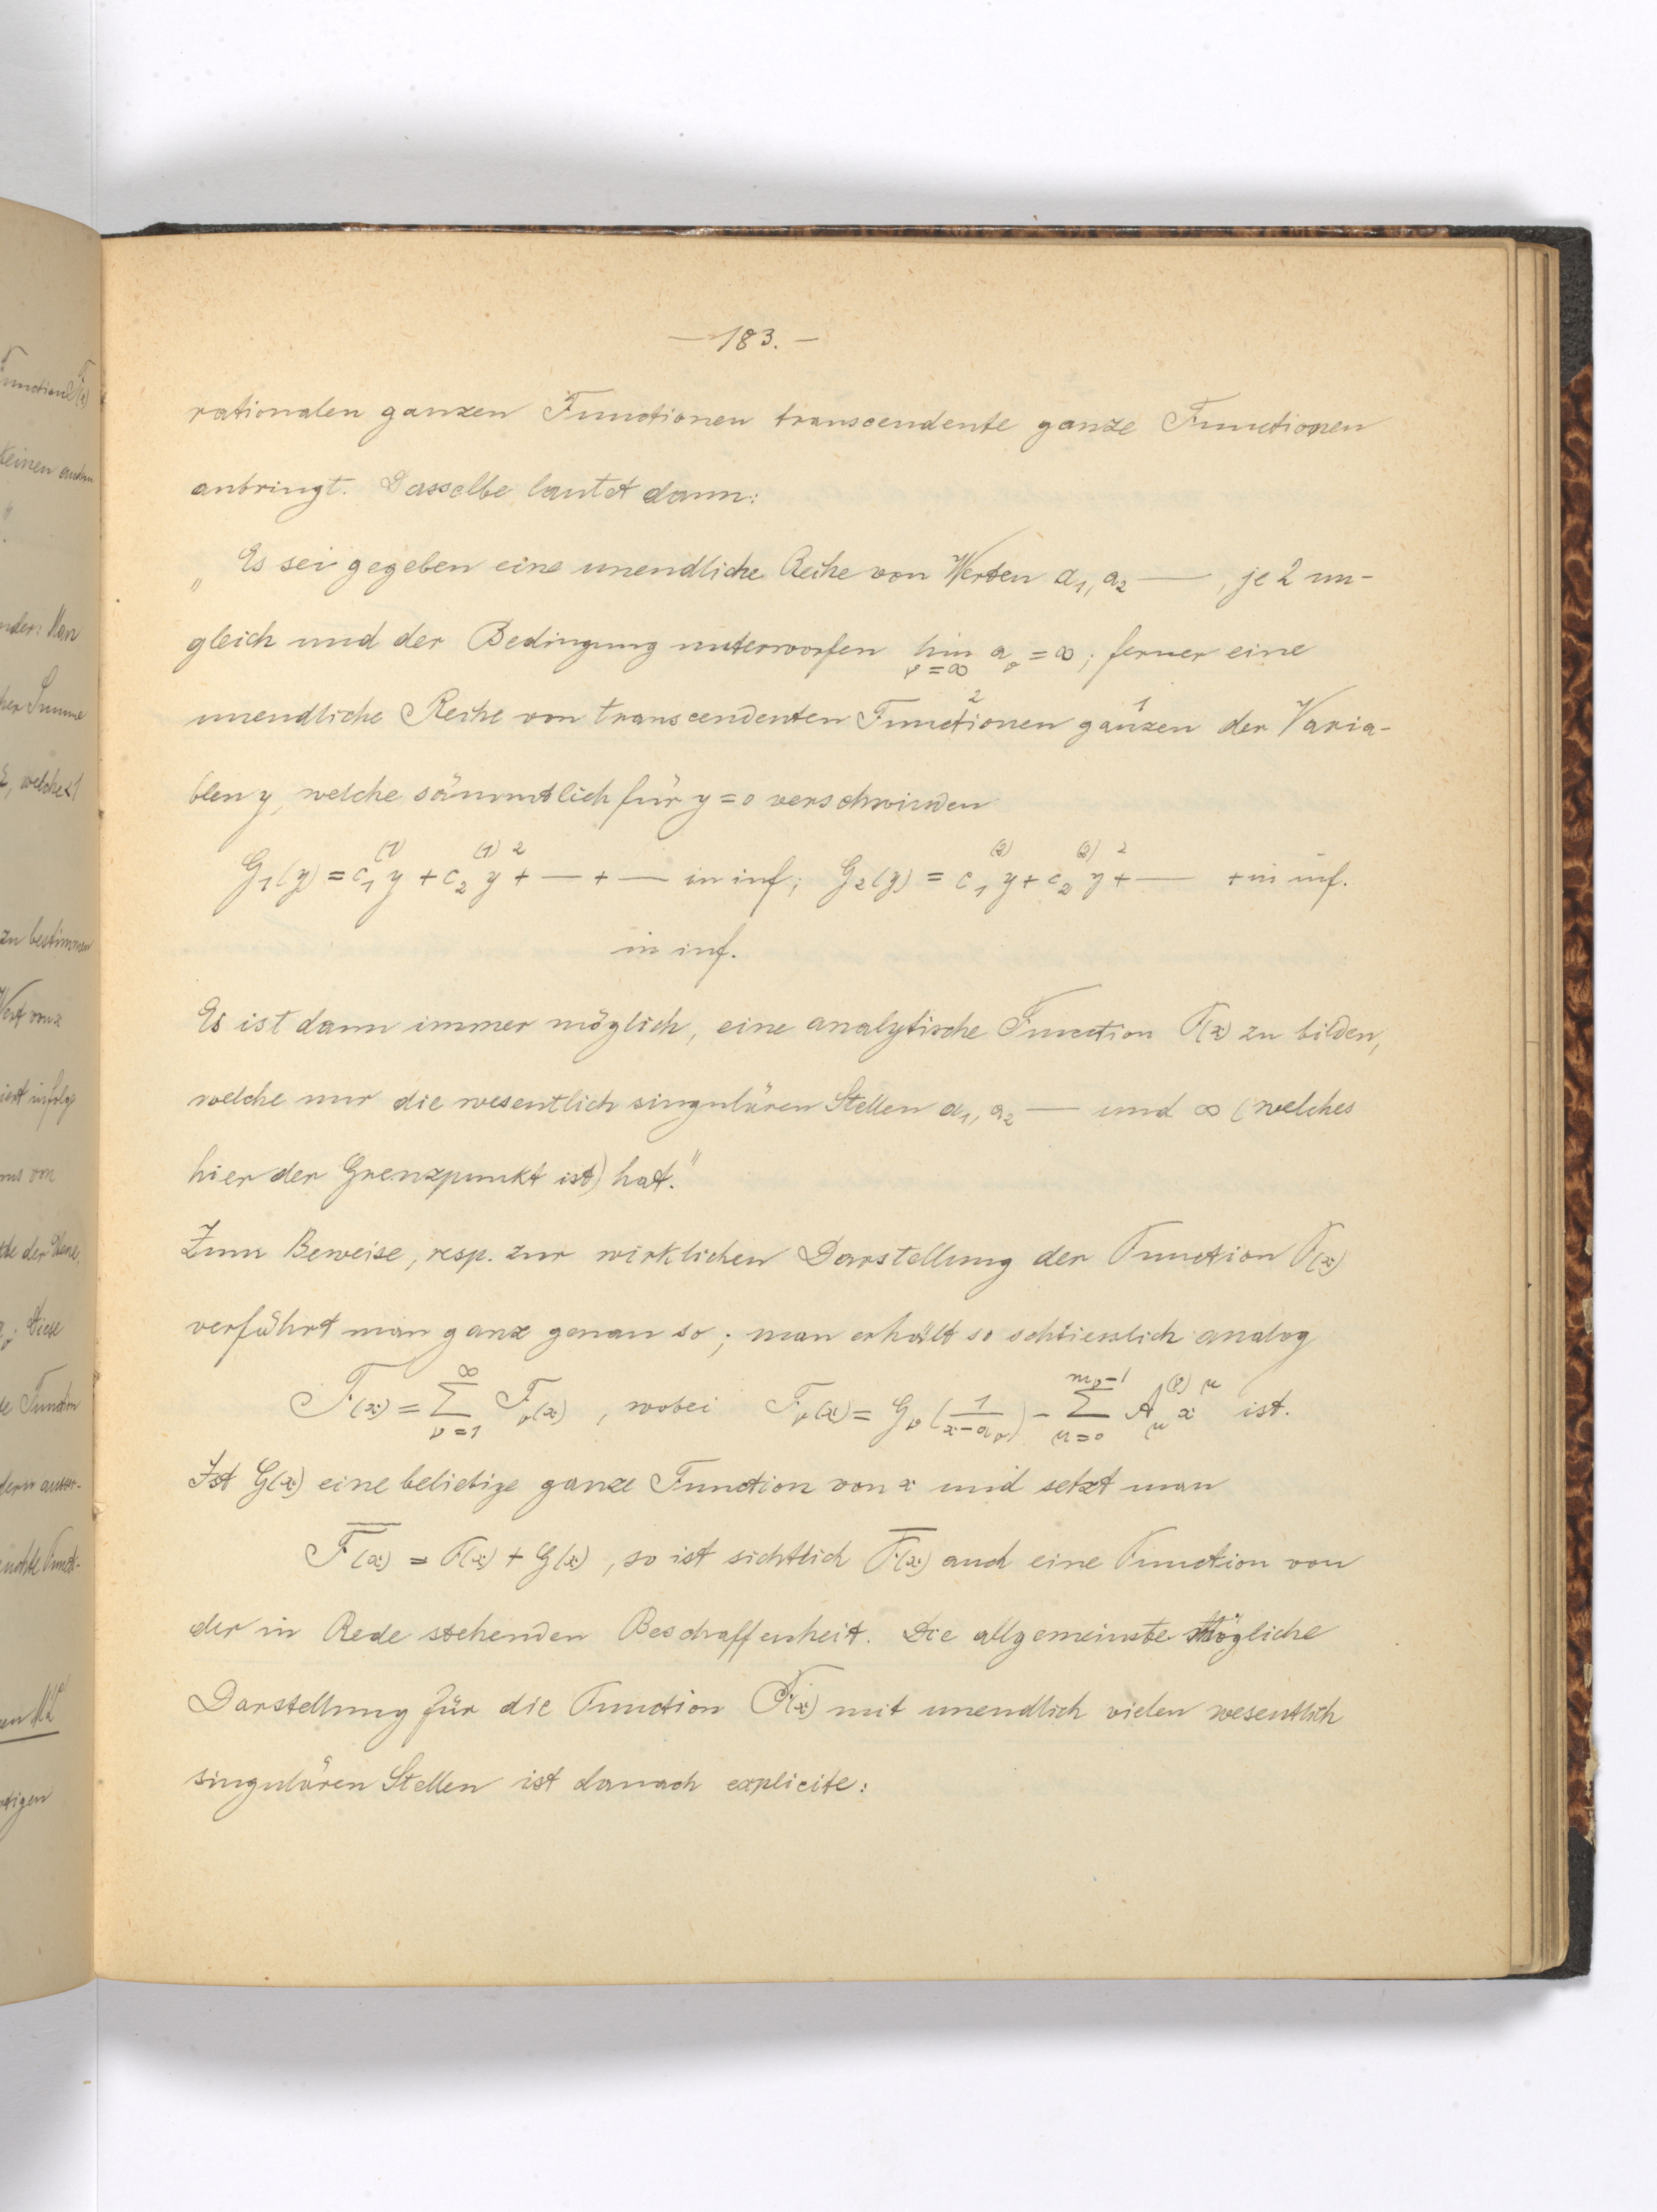 — 183. —
rationalen ganzen Functionen transcendente ganze Functionen
anbringt. Dasselbe lautet dann:
„Es sei gegeben eine unendliche Reihe von Werten a₁, a₂ — , je 2 un-
gleich und der Bedingung unterworfen lim_{ν=∞} a_ν = ∞; ferner eine
unendliche Reihe von transcendenten Functionen² ganzen¹ der Varia-
blen y, welche sämmtlich für y = 0 verschwinden
G₁(y) = c₁⁽¹⁾y + c₂⁽¹⁾y² + — + — in inf; G₂(y) = c₁⁽²⁾y + c₂⁽²⁾y² + — + in inf.
in inf.
Es ist dann immer möglich, eine analytische Function F(x) zu bilden,
welche nur die wesentlich singulären Stellen a₁, a₂ — und ∞ (welches
hier der Grenzpunkt ist) hat."
Zum Beweise, resp. zur wirklichen Darstellung der Function F(x)
verfährt man ganz genau so; man erhält so schliesslich analog
F(x) = ∑_{ν=1}^{∞} F_ν(x), wobei F_ν(x) = G_ν(1/(x-a_ν)) - ∑_{μ=0}^{m_ν-1} A_μ^{(ν)} x^μ ist.
Ist G(x) eine beliebige ganze Function von x und setzt man
F̅(x) = F(x) + G(x), so ist sichtlich F̅(x) auch eine Function von
der in Rede stehenden Beschaffenheit. Die allgemeinste mögliche
Darstellung für die Function F(x) mit unendlich vielen wesentlich
singulären Stellen ist danach explicite: